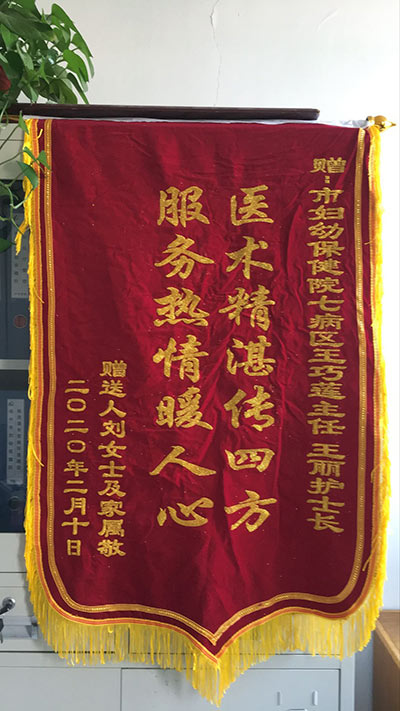 赠:市妇幼保健院七病区王巧莲主任 王丽护士长
医术精湛传四方
服务热情暖人心
赠送人刘女士及家属敬
二〇二〇年二月十日